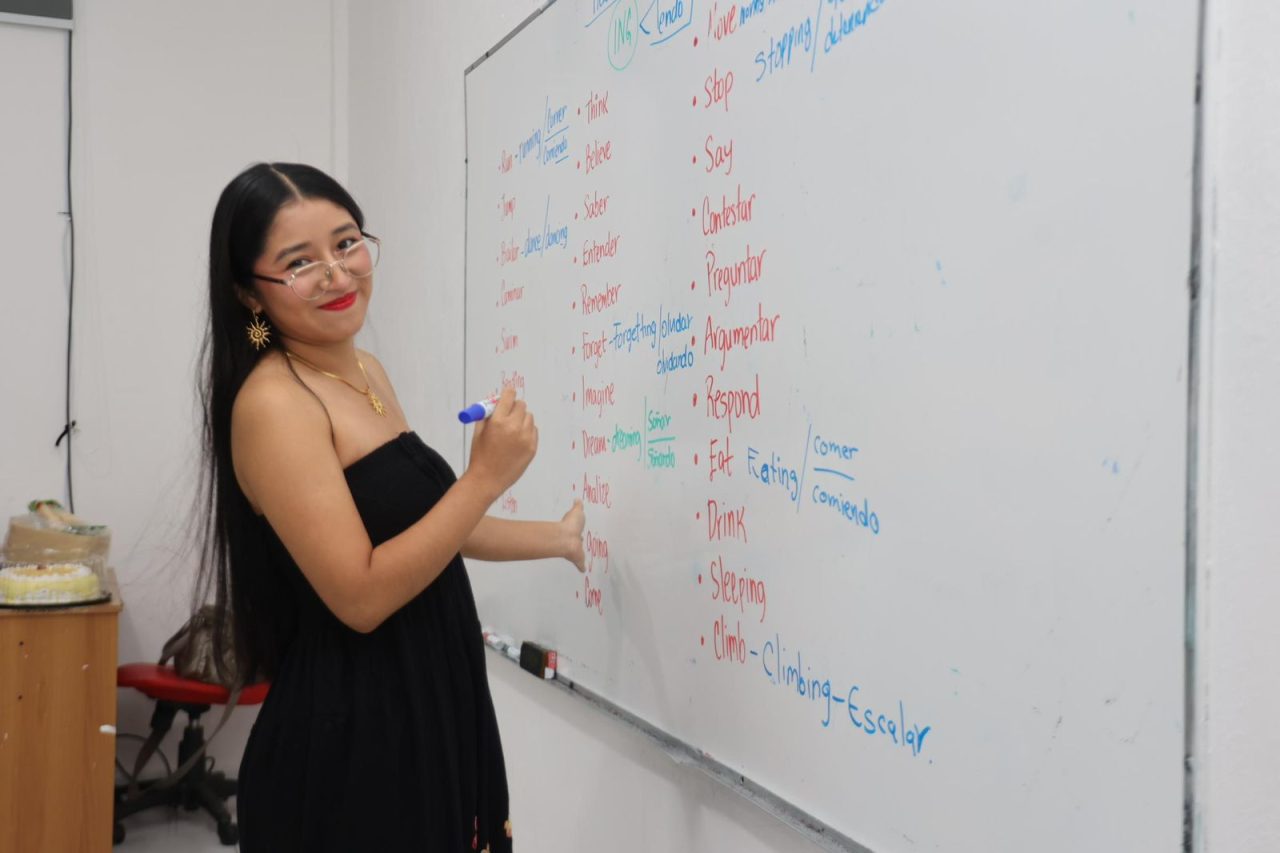 ING
endo
• Run - running / Correr
comiendo
• Jump
• Bailar - dance / dancing
• Caminar
• Swim
• Reading
• Think
• Believe
• Saber
• Entender
• Remember
• Forget - Forgetting / olvidar
olvidando
• Imagine
• Dream - dreaming / Soñar
Soñando
• Analize
going
• Come
• Move
stopping /
• Stop
• Say
• Contestar
• Preguntar
• Argumentar
• Respond
• Eat Eating / comer
comiendo
• Drink
• Sleeping
• Climb - Climbing - Escalar.